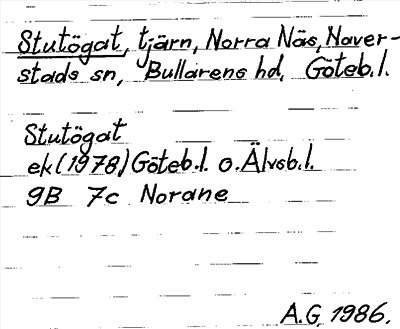 Stutögat, tjärn, Norra Näs, Naver-
stads sn, Bullarens hd, Göteb.l.
Stutögat
ek (1978) Göteb.l. o. Älvsb.l.
9B 7c Norane
A.G 1986.